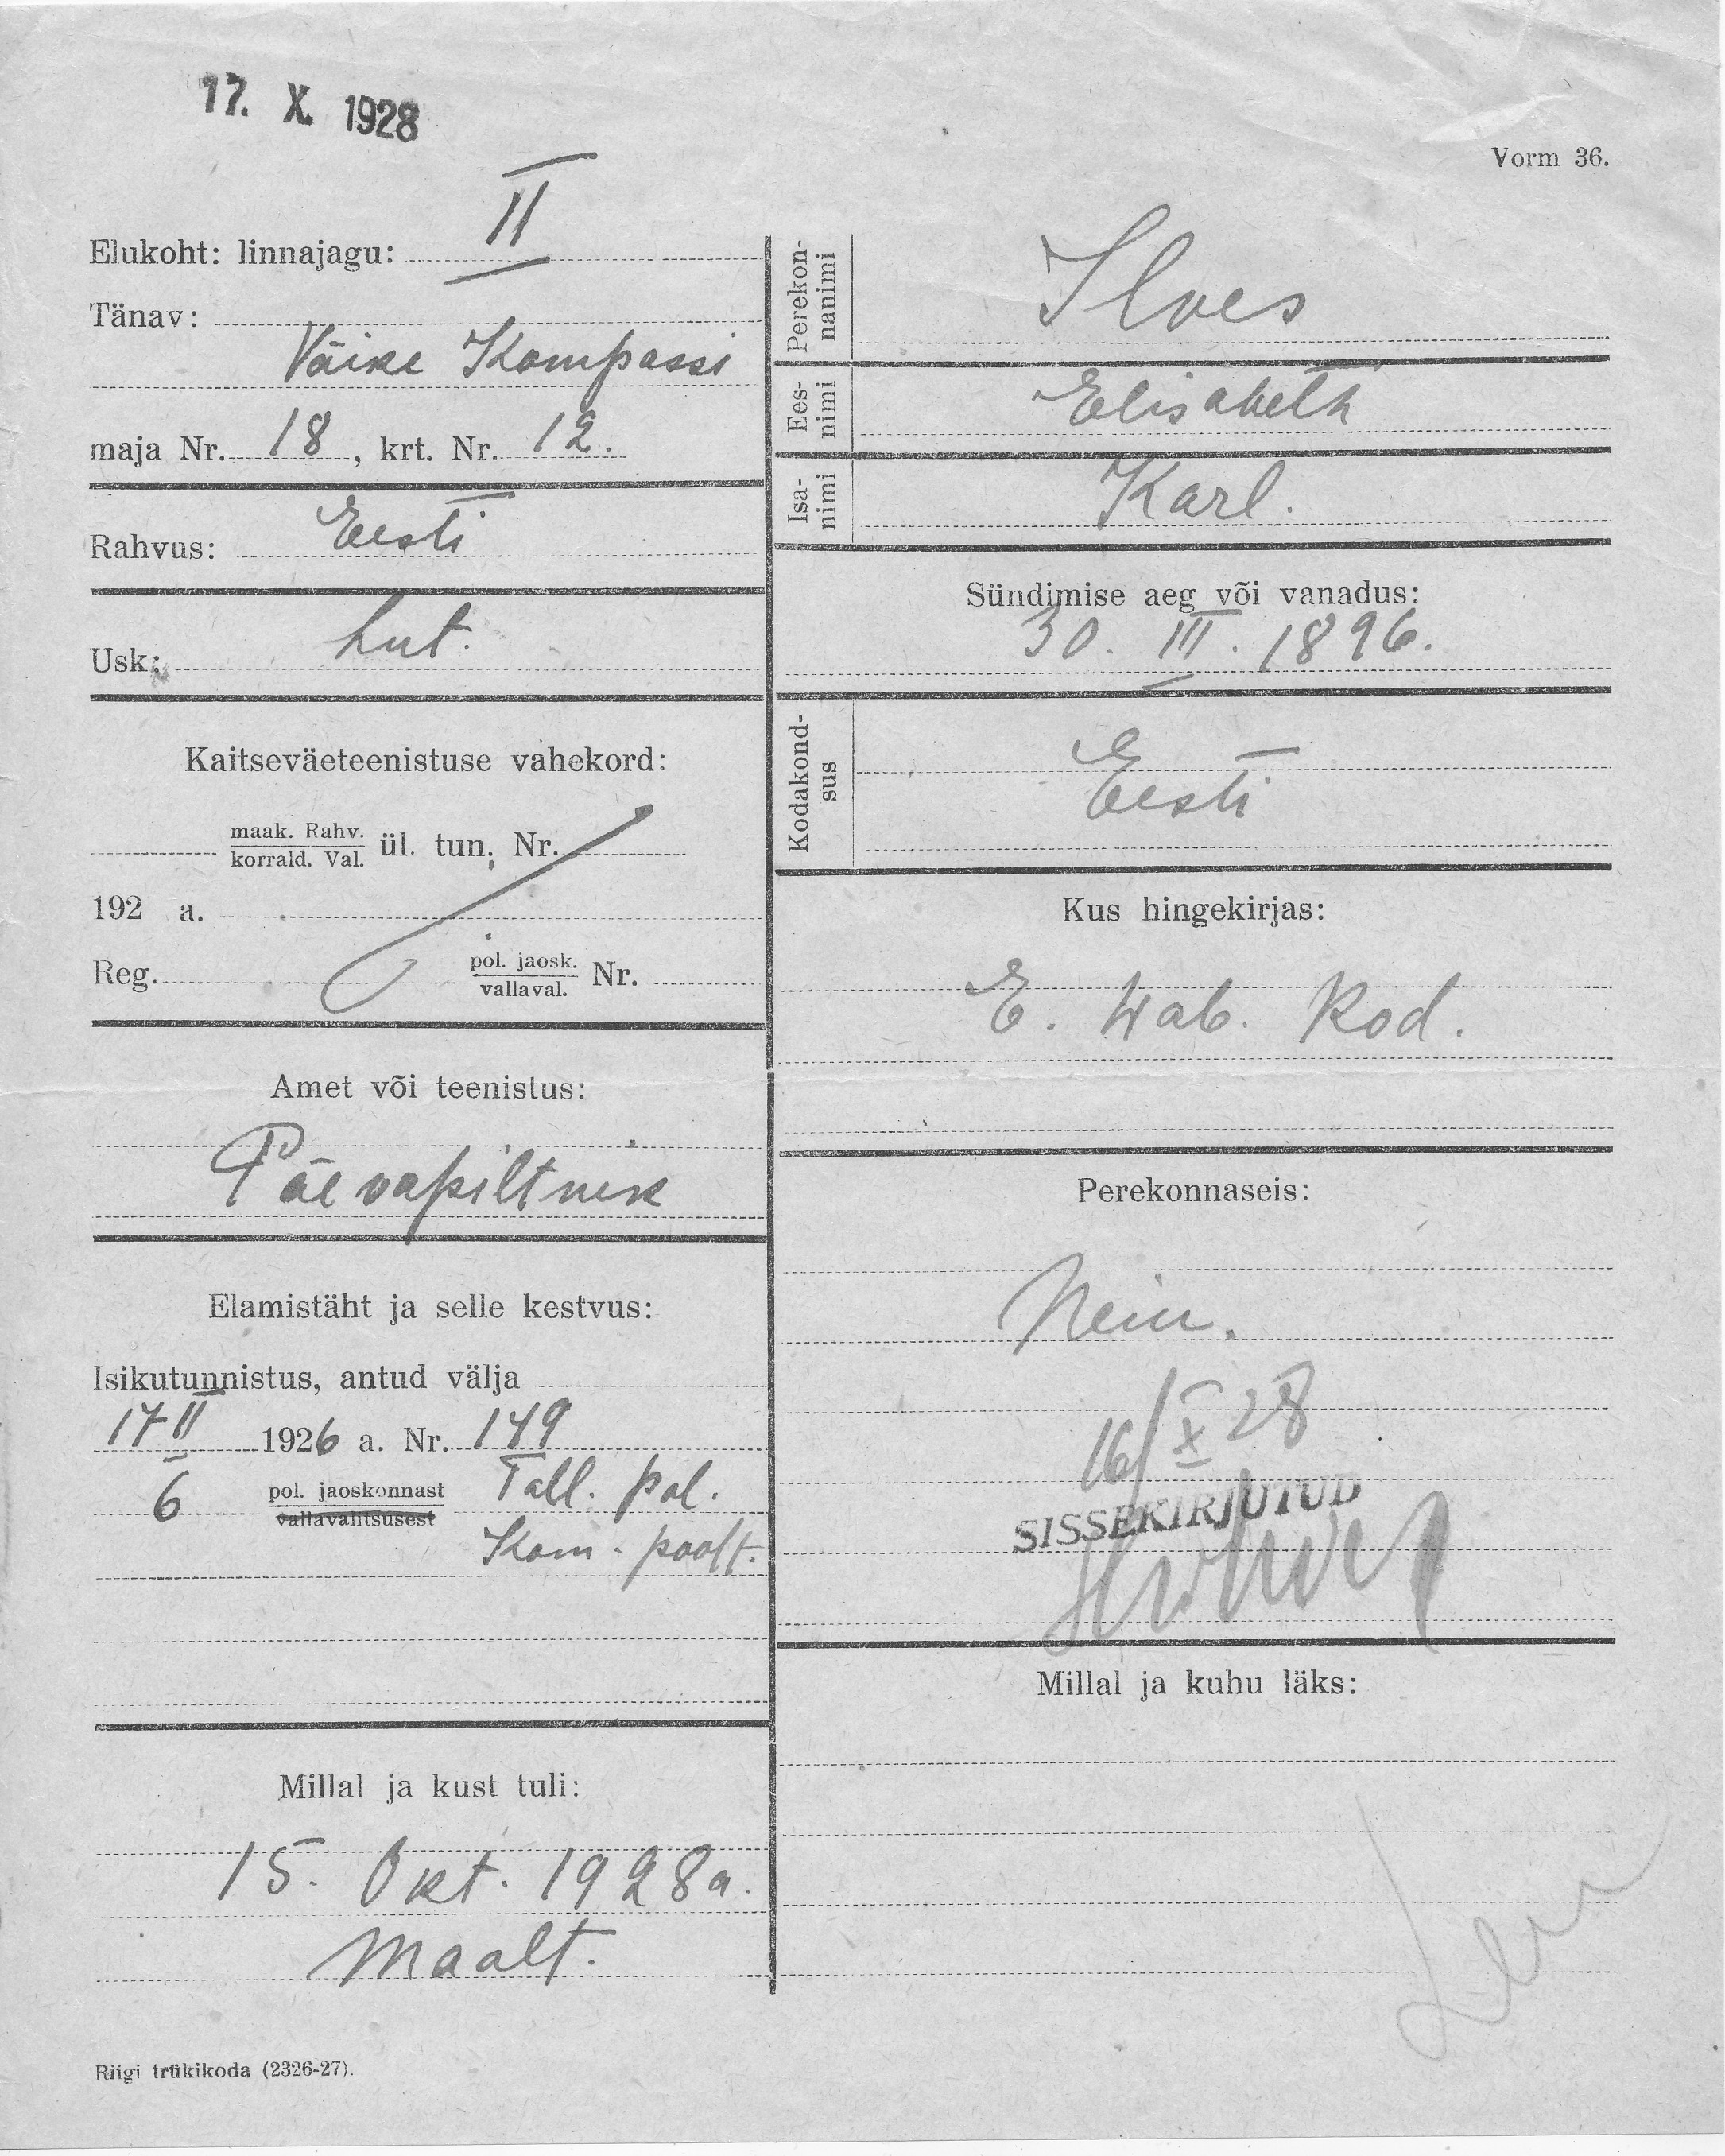 17. X. 1928
Vorm 36.
Elukoht: linnajagu: II
Tänav:
Väike Kompassi
maja Nr. 18, krt. Nr. 12.
Rahvus: Eesti
Usk: Lut.
Kaitseväeteenistuse vahekord:
maak. Rahv.
korrald. Val.
ül. tun. Nr.
192 a.
Reg.
pol. jaosk.
vallaval.
Nr.
Amet või teenistus:
Päevapiltnik
Elamistäht ja selle kestvus:
Isikutunnistus, antud välja
17 II 1926 a. Nr. 149
6 pol. jaoskonnast Tall. pol.
vallavalitsusest
Kom. poolt.
Millal ja kust tuli:
15. Okt. 1928 a.
Maalt.
Riigi trükikoda (2326-27).
Perekon-
nanimi
Ilves
Ees-
nimi
Elisabeth
Isa-
nimi
Karl.
Sündimise aeg või vanadus:
30. III. 1896.
Kodakond-
sus
Eesti
Kus hingekirjas:
E. Wab. Kod.
Perekonnaseis:
Nein.
16/X 28
SISSEKIRJUTUD
Millal ja kuhu läks: